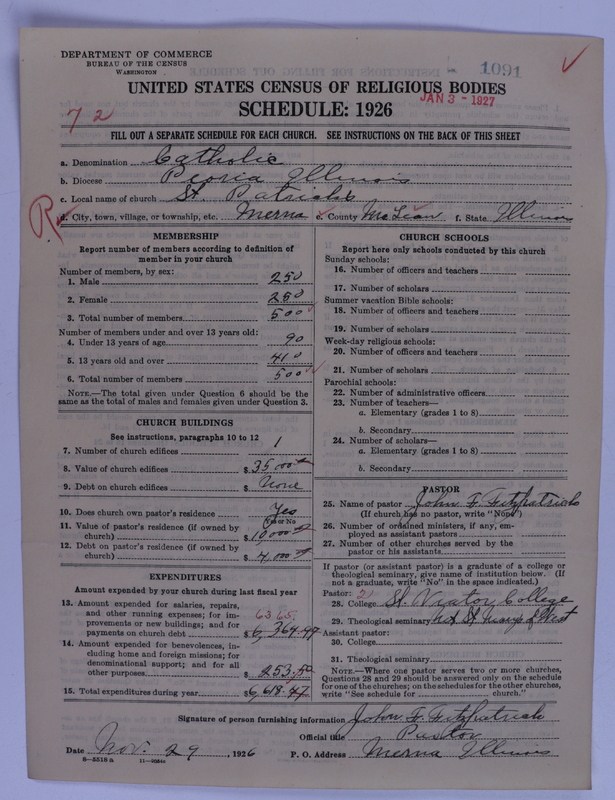 DEPARTMENT OF COMMERCE
BUREAU OF THE CENSUS
WASHINGTON
1091
UNITED STATES CENSUS OF RELIGIOUS BODIES
JAN 3 - 1927
SCHEDULE: 1926
72
FILL OUT A SEPARATE SCHEDULE FOR EACH CHURCH. SEE INSTRUCTIONS ON THE BACK OF THIS SHEET
a. Denomination Catholic
b. Diocese Peoria Illinois
c. Local name of church St. Patricks
R
d. City, town, village, or township, etc. Merna e. County McLean f. State Illinois
MEMBERSHIP
Report number of members according to definition of member in your church
Number of members, by sex:
1. Male 250
2. Female 250
3. Total number of members 500
Number of members under and over 13 years old:
4. Under 13 years of age 90
5. 13 years old and over 410
6. Total number of members 500
NOTE.—The total given under Question 6 should be the same as the total of males and females given under Question 3.
CHURCH BUILDINGS
See instructions, paragraphs 10 to 12
7. Number of church edifices 1
8. Value of church edifices $35000
9. Debt on church edifices $None
10. Does church own pastor's residence? Yes
(Yes or No)
11. Value of pastor's residence (if owned by church) $10,000
12. Debt on pastor's residence (if owned by church) $4,000
EXPENDITURES
Amount expended by your church during last fiscal year
13. Amount expended for salaries, repairs, and other running expenses; for improvements or new buildings; and for payments on church debt $6,364.47
6365
14. Amount expended for benevolences, including home and foreign missions; for denominational support; and for all other purposes $253.00
15. Total expenditures during year $6,618.47
CHURCH SCHOOLS
Report here only schools conducted by this church
Sunday schools:
16. Number of officers and teachers
17. Number of scholars
Summer vacation Bible schools:
18. Number of officers and teachers
19. Number of scholars
Week-day religious schools:
20. Number of officers and teachers
21. Number of scholars
Parochial schools:
22. Number of administrative officers
23. Number of teachers—
a. Elementary (grades 1 to 8)
b. Secondary
24. Number of scholars—
a. Elementary (grades 1 to 8)
b. Secondary
PASTOR
25. Name of pastor John F. Fitzpatrick
(If church has no pastor, write "None")
26. Number of ordained ministers, if any, employed as assistant pastors
27. Number of other churches served by the pastor or his assistants
If pastor (or assistant pastor) is a graduate of a college or theological seminary, give name of institution below. (If not a graduate, write "No" in the space indicated.)
Pastor: 2
28. College St. Viator College
29. Theological seminary St. Mary of West
Assistant pastor:
30. College
31. Theological seminary
NOTE.—Where one pastor serves two or more churches, Questions 28 and 29 should be answered only on the schedule for one of the churches; on the schedules for the other churches, write "See schedule for church."
Signature of person furnishing information John F. Fitzpatrick
Official title Pastor
Date Nov. 29, 1926 P. O. Address Merna Illinois